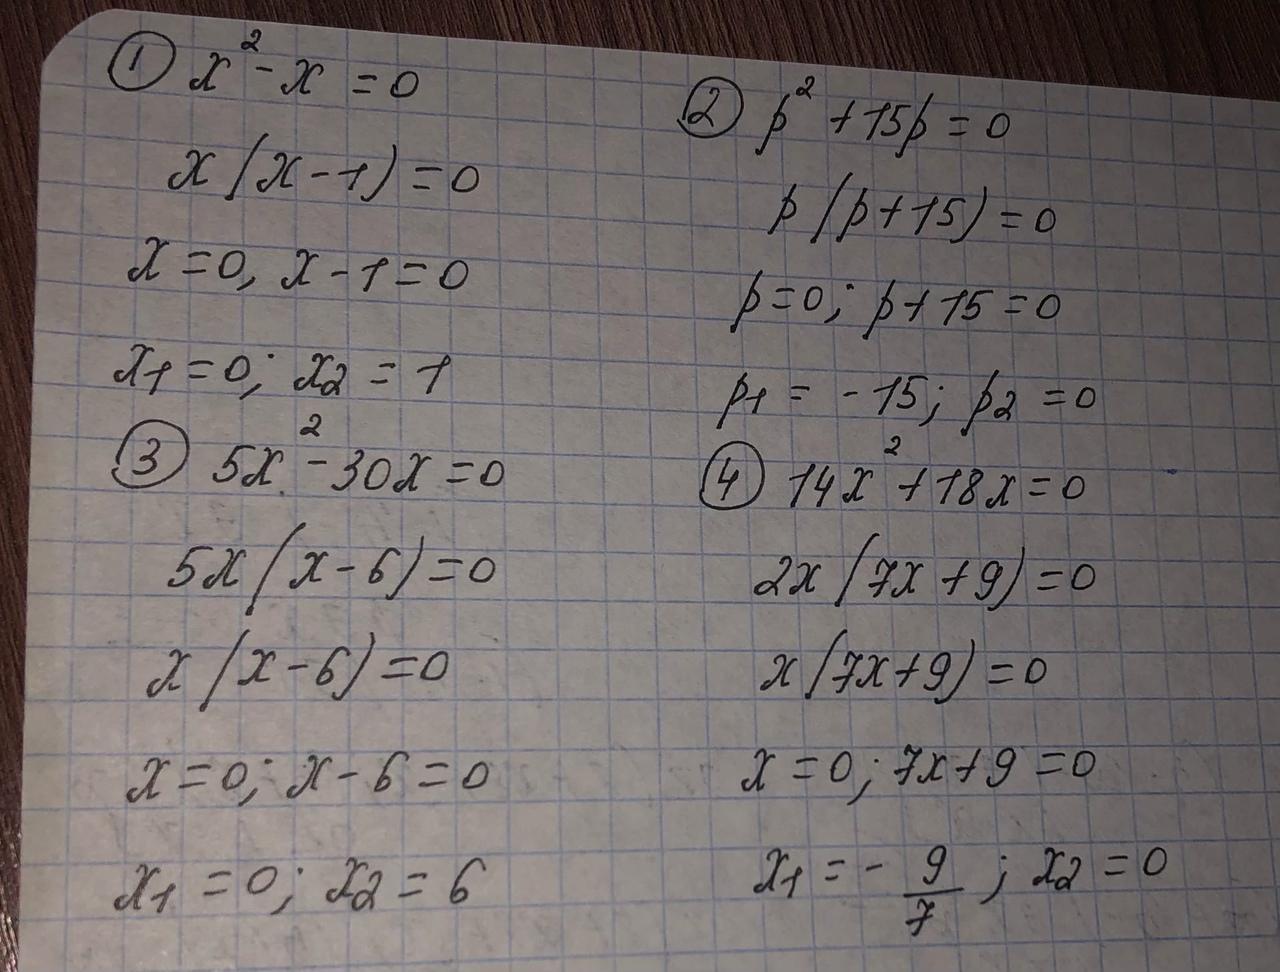 ① x² - x = 0
x (x - 1) = 0
x = 0, x - 1 = 0
x1 = 0; x2 = 1
② p² + 15p = 0
p (p + 15) = 0
p = 0; p + 15 = 0
p1 = - 15; p2 = 0
③ 5x² - 30x = 0
5x (x - 6) = 0
x (x - 6) = 0
x = 0; x - 6 = 0
x1 = 0; x2 = 6
④ 14x² + 18x = 0
2x (7x + 9) = 0
x (7x + 9) = 0
x = 0; 7x + 9 = 0
x1 = - 9/7; x2 = 0